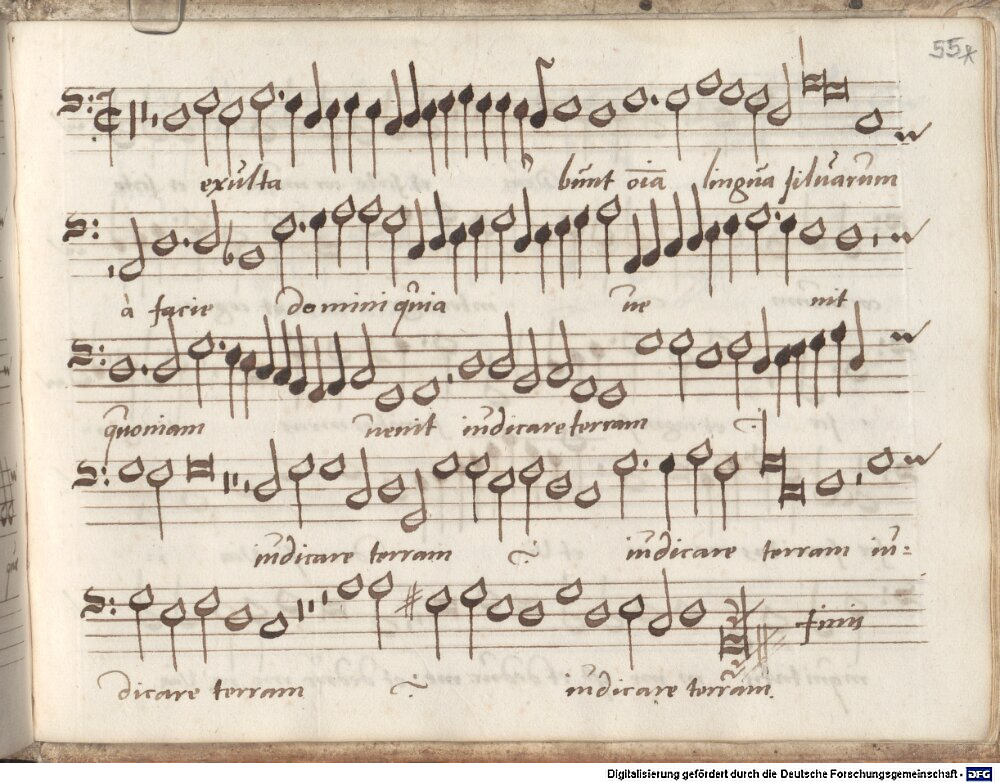 55
exulta bunt oīa lingua siluarum
à facie domini quia ve nit
quoniam venit iudicare terram
iudicare terram iudicare terram iu=
dicare terram iudicare terram.
finis
Digitalisierung gefördert durch die Deutsche Forschungsgemeinschaft - DFG